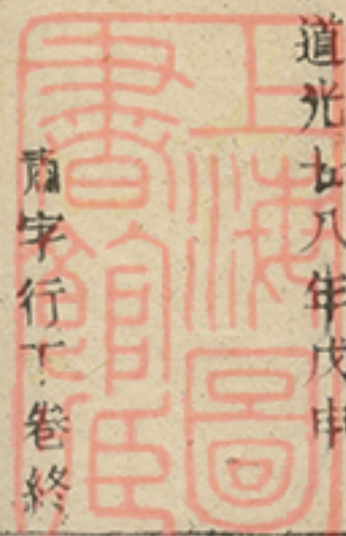 道光廿八年戊申
肅字行下卷終
上海圖書館藏